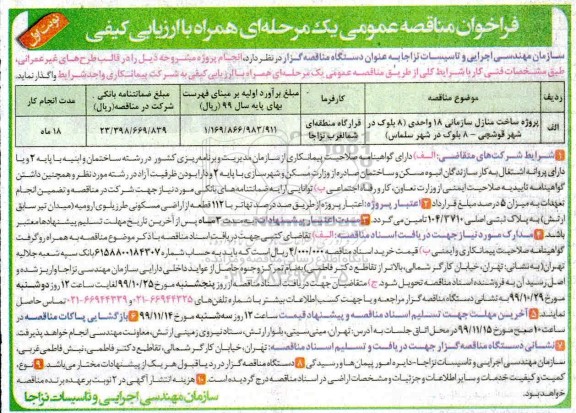 نوبت اول
فراخوان مناقصه عمومی یک مرحله‌ای همراه با ارزیابی کیفی
سازمان مهندسی اجرایی و تاسیسات نزاجا به عنوان دستگاه مناقصه گزار در نظر دارد، انجام پروژه مشروحه ذیل را در قالب طرح‌های غیر عمرانی،
طبق مشخصات فنی کار با شرایط کلی از طریق مناقصه عمومی یک مرحله‌ای همراه با ارزیابی کیفی به شرکت پیمانکاری واجد شرایط واگذار نماید.
ردیف
موضوع مناقصه
کارفرما
مبلغ برآورد اولیه بر مبنای فهرست بهای پایه سال ۹۹ (ریال)
مبلغ ضمانتنامه بانکی شرکت در مناقصه (ریال)
مدت انجام کار
الف
پروژه ساخت منازل سازمانی ۱۸ واحدی (۸ بلوک در شهر قوشچی – ۸ بلوک در شهر سلماس)
قرارگاه منطقه‌ای شمالغرب نزاجا
۱/۱۶۹/۸۶۶/۹۸۳/۹۱۱
۲۳/۳۹۸/۶۶۹/۸۳۹
۱۸ ماه
۱ شرایط شرکت‌های متقاضی: الف) دارای گواهینامه صلاحیت پیمانکاری از سازمان مدیریت و برنامه‌ریزی کشور در رشته ساختمان و ابنیه با پایه ۲ و یا
دارای پروانه اشتغال به کار سازندگان انبوه مسکن و ساختمان صادره از وزارت مسکن و شهرسازی با پایه ۲ و دارا بودن ظرفیت آزاد در رشته مورد نظر و همچنین داشتن
گواهینامه تایید به صلاحیت ایمنی از وزارت تعاون، کار و رفاه اجتماعی ب) توانایی ارایه ضمانتنامه‌های بانکی مورد نیاز جهت شرکت در مناقصه و تضمین انجام
تعهدات به میزان ۵ درصد مبلغ قرارداد ۲ اعتبار پروژه: اعتبار پروژه از طریق صد درصد تهاتر با ۱۱۲ قطعه از اراضی مسکونی طرزیلوی ارومیه (میدان تیر سابق
ارتش) به پلاک ثبتی اصلی ۱۰۴/۳۷۱۰ تامین می‌گردد. ۳ مدت اعتبار پیشنهادات: مدت ۳ ماه پس از آخرین تاریخ مهلت تسلیم پیشنهادها معتبر
باشد ۴ مدارک مورد نیاز جهت دریافت اسناد مناقصه: الف) تقاضای کتبی جهت دریافت اسناد مناقصه با ذکر موضوع مناقصه به همراه رو گرفت
گواهینامه صلاحیت پیمانکاری و ایمنی ب) قیمت خرید اسناد مناقصه ریال است که باید به حساب شماره بانک سپه شعبه جلالیه
تهران (به نشانی: تهران، خیابان کارگر شمالی، بالاتر از تقاطع دکتر فاطمی) به نام تمرکز وجوه حاصل از عواید داخلی دارایی سازمان مهندسی نزاجا واریز شده و
اصل رسید آن به فروشنده اسناد مناقصه تحویل شود ج) متقاضیان جهت دریافت اسناد مناقصه از روز پنجشنبه مورخ ۹۹/۱۰/۲۵ لغایت ساعت ۱۲ روز دوشنبه
مورخ ۹۹/۱۰/۲۹ به نشانی دستگاه مناقصه گزار مراجعه و یا جهت کسب اطلاعات بیشتر با شماره تلفن‌های ۶۶۹۴۴۳۲۵-۰۲۱ و ۶۶۹۴۴۳۳۹-۰۲۱ تماس حاصل
نمایند ۵ آخرین مهلت جهت تسلیم اسناد مناقصه و پیشنهاد قیمت: ساعت ۱۲ روز سه‌شنبه مورخ ۹۹/۱۱/۱۴ ۶ بازگشایی پاکات مناقصه: در
ساعت ۱۰ صبح مورخ ۹۹/۱۱/۱۵ در محل اتاق جلسات به آدرس: تهران، مینی‌سیتی، بلوار ارتش، ستاد نیروی زمینی ارتش، معاونت مهندسی انجام خواهد پذیرفت.
۷ نشانی دستگاه مناقصه گزار جهت دریافت و تسلیم اسناد مناقصه: تهران، خیابان کارگر شمالی، تقاطع دکتر فاطمی، نبش فاطمی غربی،
سازمان مهندسی اجرایی و تاسیسات نزاجا - دایره امور پیمان‌ها و رسیدگی ۸ دستگاه مناقصه گزار در رد یا قبول هر یک از پیشنهادات مختار می‌باشد. ۹ نوع،
کمیت و کیفیت خدمات و سایر اطلاعات و جزئیات و مشخصات اراضی در اسناد مناقصه درج گردیده است. ۱۰ هزینه انتشار آگهی در ۲ نوبت بر عهده برنده مناقصه
خواهد بود.
سازمان مهندسی اجرایی و تاسیسات نزاجا